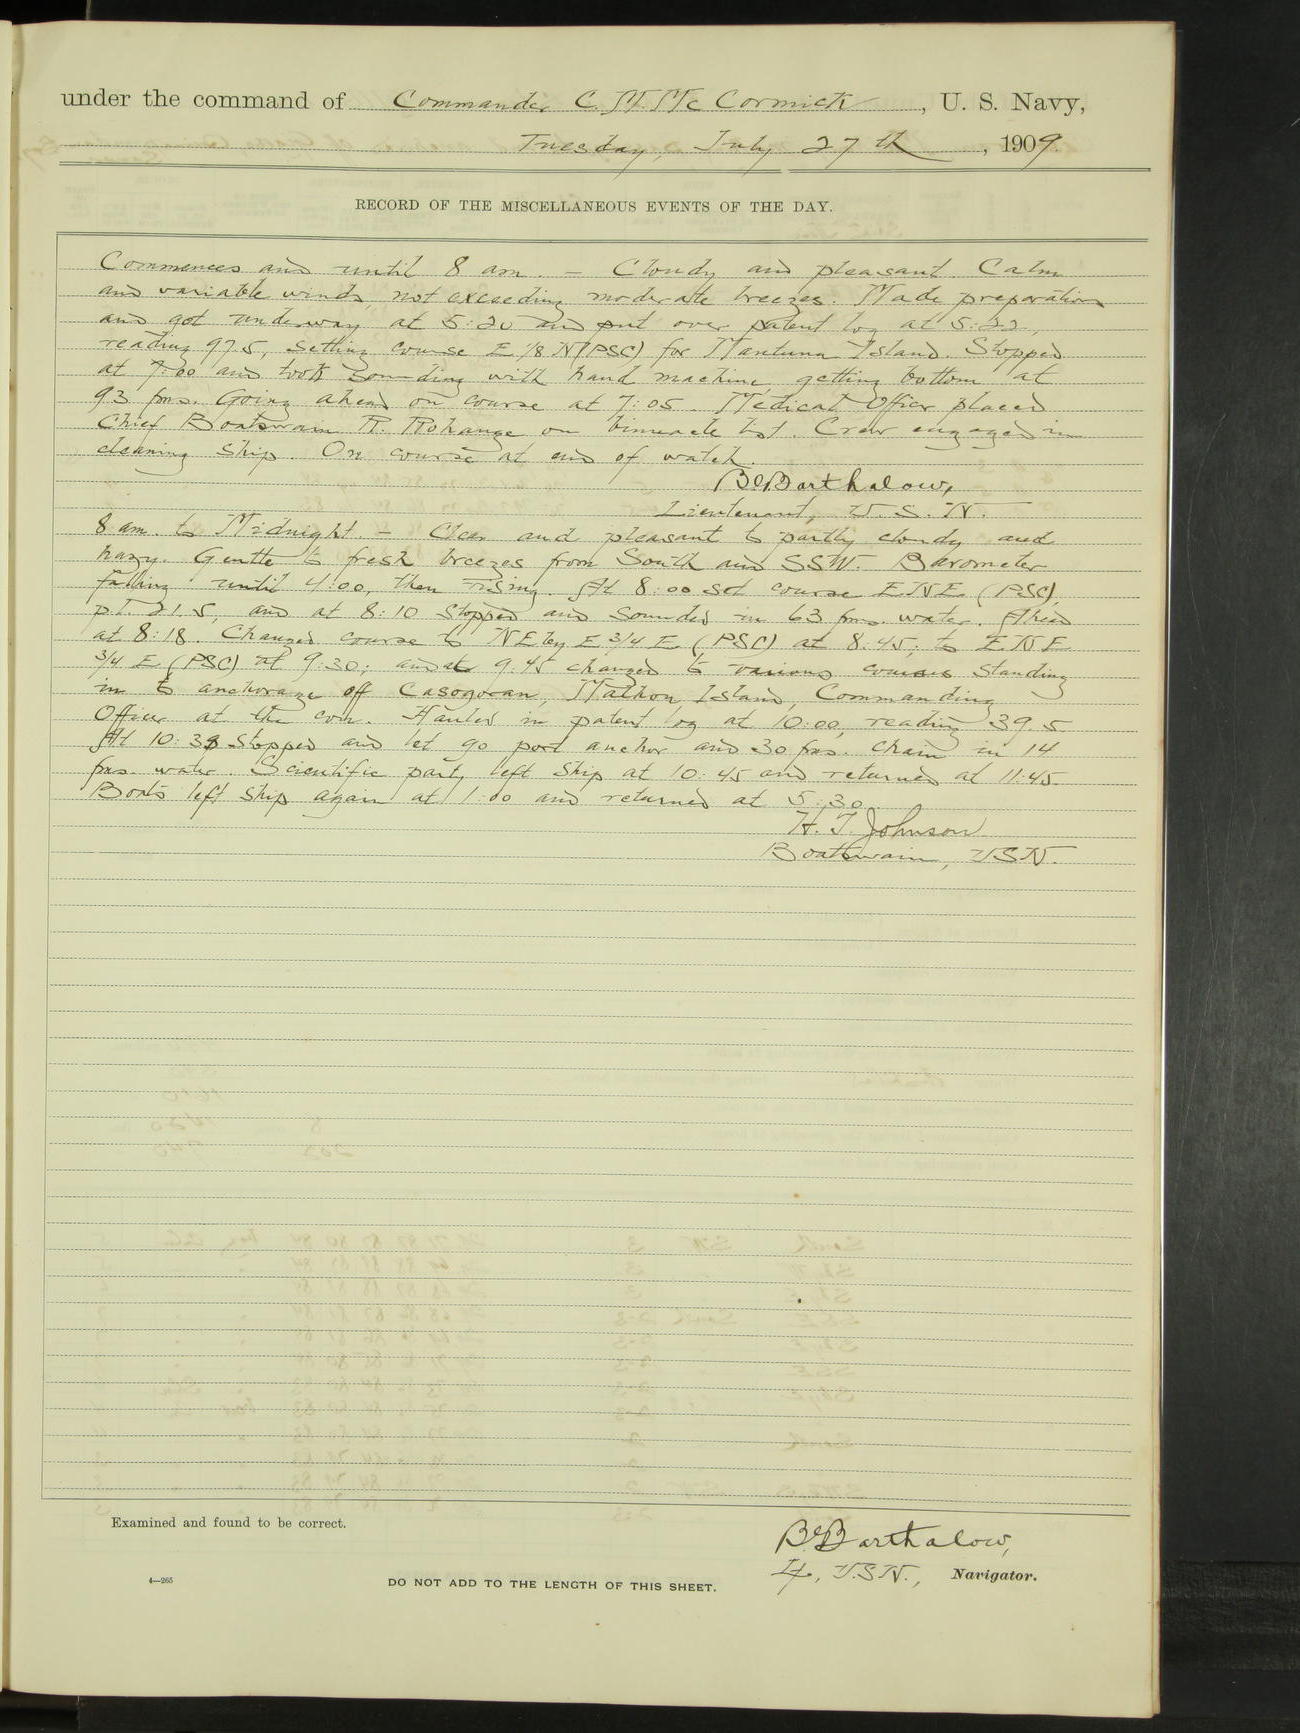 under the command of Commander C. M. McCormick, U. S. Navy,
Tuesday, July 27th, 1909.
RECORD OF THE MISCELLANEOUS EVENTS OF THE DAY.
Commences and until 8 am. — Cloudy and pleasant. Calm
and variable winds, not exceeding moderate breezes. Made preparations
and got underway at 5:20 and put over patent log at 5:22,
reading 97.5, setting course E 1/8 N (PSC) for Mantuna Island. Stopped
at 7:00 and took sounding with hand machine, getting bottom at
93 fms. Going ahead on course at 7:05. Medical Officer placed
Chief Boatswain H. on binnacle list. Crew engaged in
cleaning ship. On course at end of watch.
B. Barthalow,
Lieutenant, U.S.N.
8 am. to Midnight. — Clear and pleasant to partly cloudy and
hazy. Gentle to fresh breezes from South and SSW. Barometer
falling until 4:00, then rising. At 8:00 set course ENE (PSC),
p.l. 21.5, and at 8:10 stopped and sounded in 63 fms. water. Ahead
at 8:18. Changed course to NE by E 3/4 E (PSC) at 8.45; to ENE
3/4 E (PSC) at 9:30; and at 9:45 changed to various courses standing
in to anchorage off Casogoran, Island, Commanding
Officer at the con. Hauled in patent log at 10:00, reading 39.5
At 10:38 stopped and let go port anchor and 30 fms. chain in 14
fms. water. Scientific party left ship at 10:45 and returned at 11:45.
Boats left ship again at 1:00 and returned at 5:30.
H. T. Johnson
Boatswain, USN.
Examined and found to be correct.
B. Barthalow,
Lt., U.S.N., Navigator.
4—265
DO NOT ADD TO THE LENGTH OF THIS SHEET.